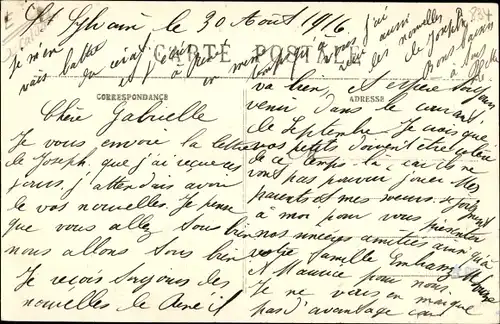 St Sylvain le 30 Août 1916
CARTE POSTALE
CORRESPONDANCE
ADRESSE
Chère Gabrielle
Je vous envoie la lettre
de Joseph que j'ai reçue ces
jours, j'attendais avoir
de vos nouvelles. Je pense
que vous allez tous bien
nous allons tous bien
Je reçois toujours des
nouvelles de René il
va bien, et espère toujours
venir dans le courant
de Septembre. Je crois que
vos petits doivent être
de ce temps-là car ils ne
vont pas pouvoir jouer. Mes
parents et mes sœurs se joignent
à moi pour vous présenter
nos sincères amitiés ainsi qu'à
votre famille. Embrassez
et Maurice pour nous.
Je ne vous en marque
pas d'avantage car
Je m'en
vais battre
et j'ai
à
en même
temps qu'à vous j'ai
aussi
des nouvelles
de Joseph
Bons baisers
à tous